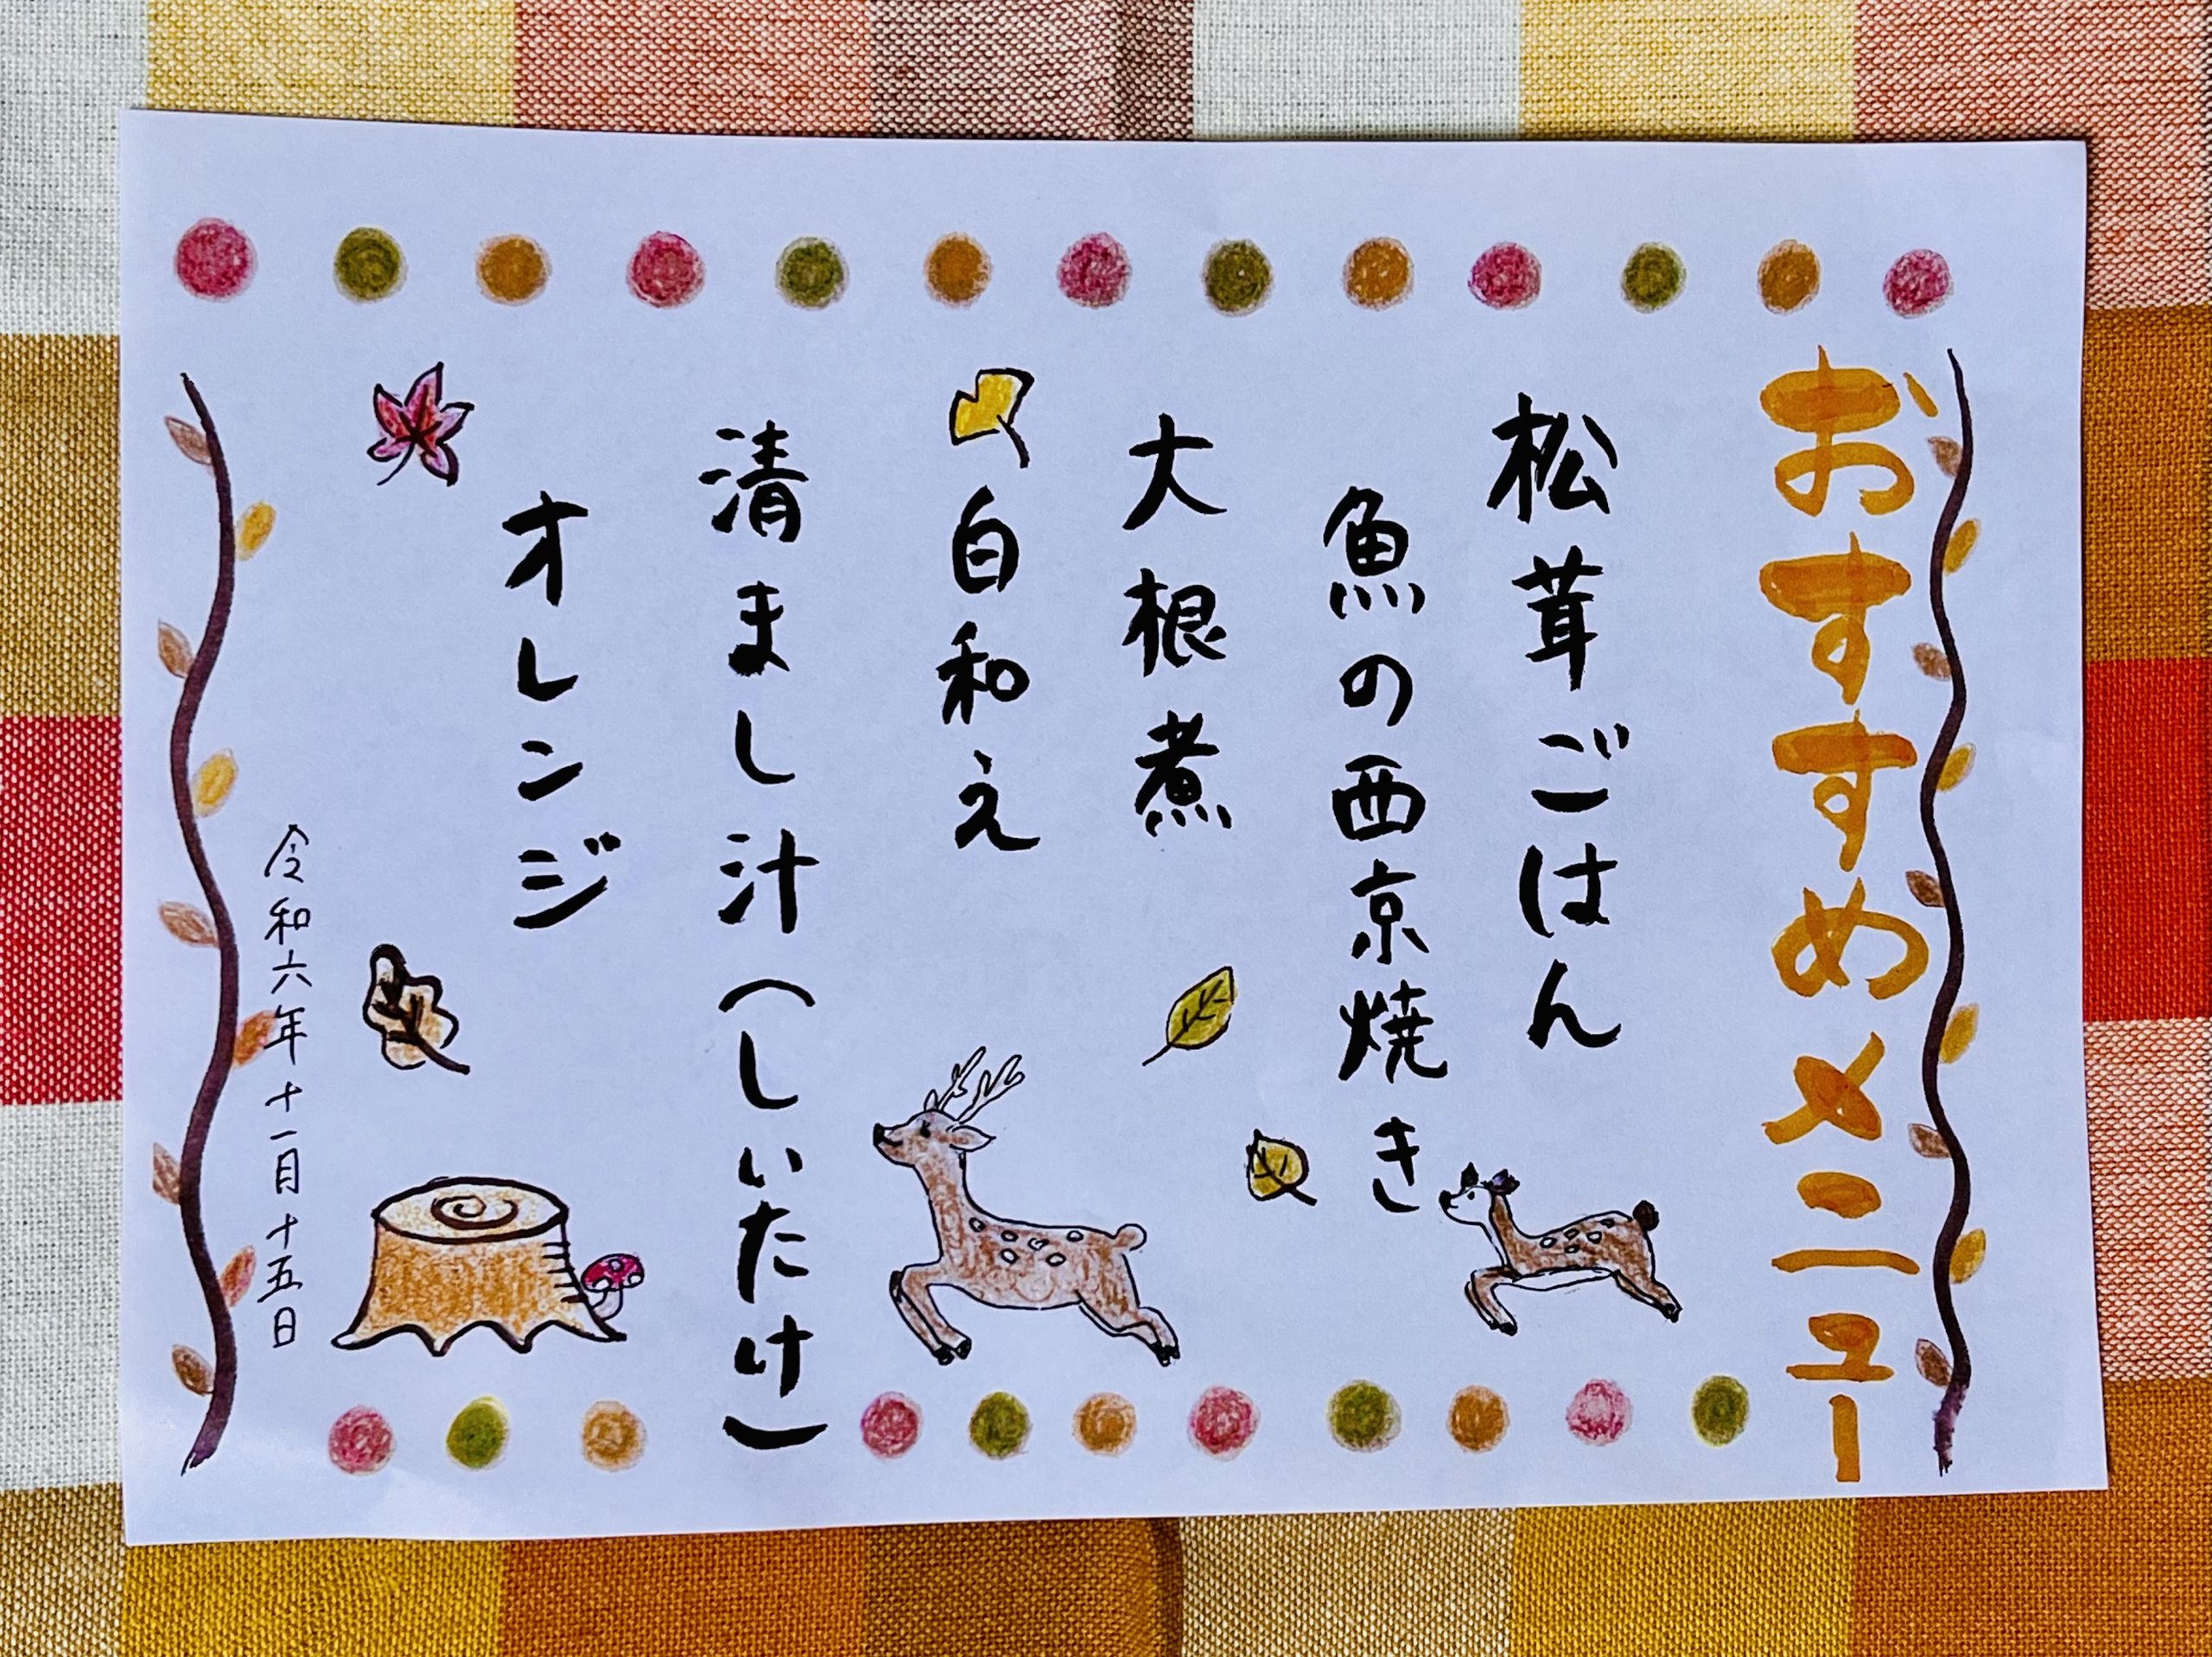 おすすめメニュー
松茸ごはん
魚の西京焼き
大根煮
白和え
清まし汁(しいたけ)
オレンジ
令和六年十一月十五日